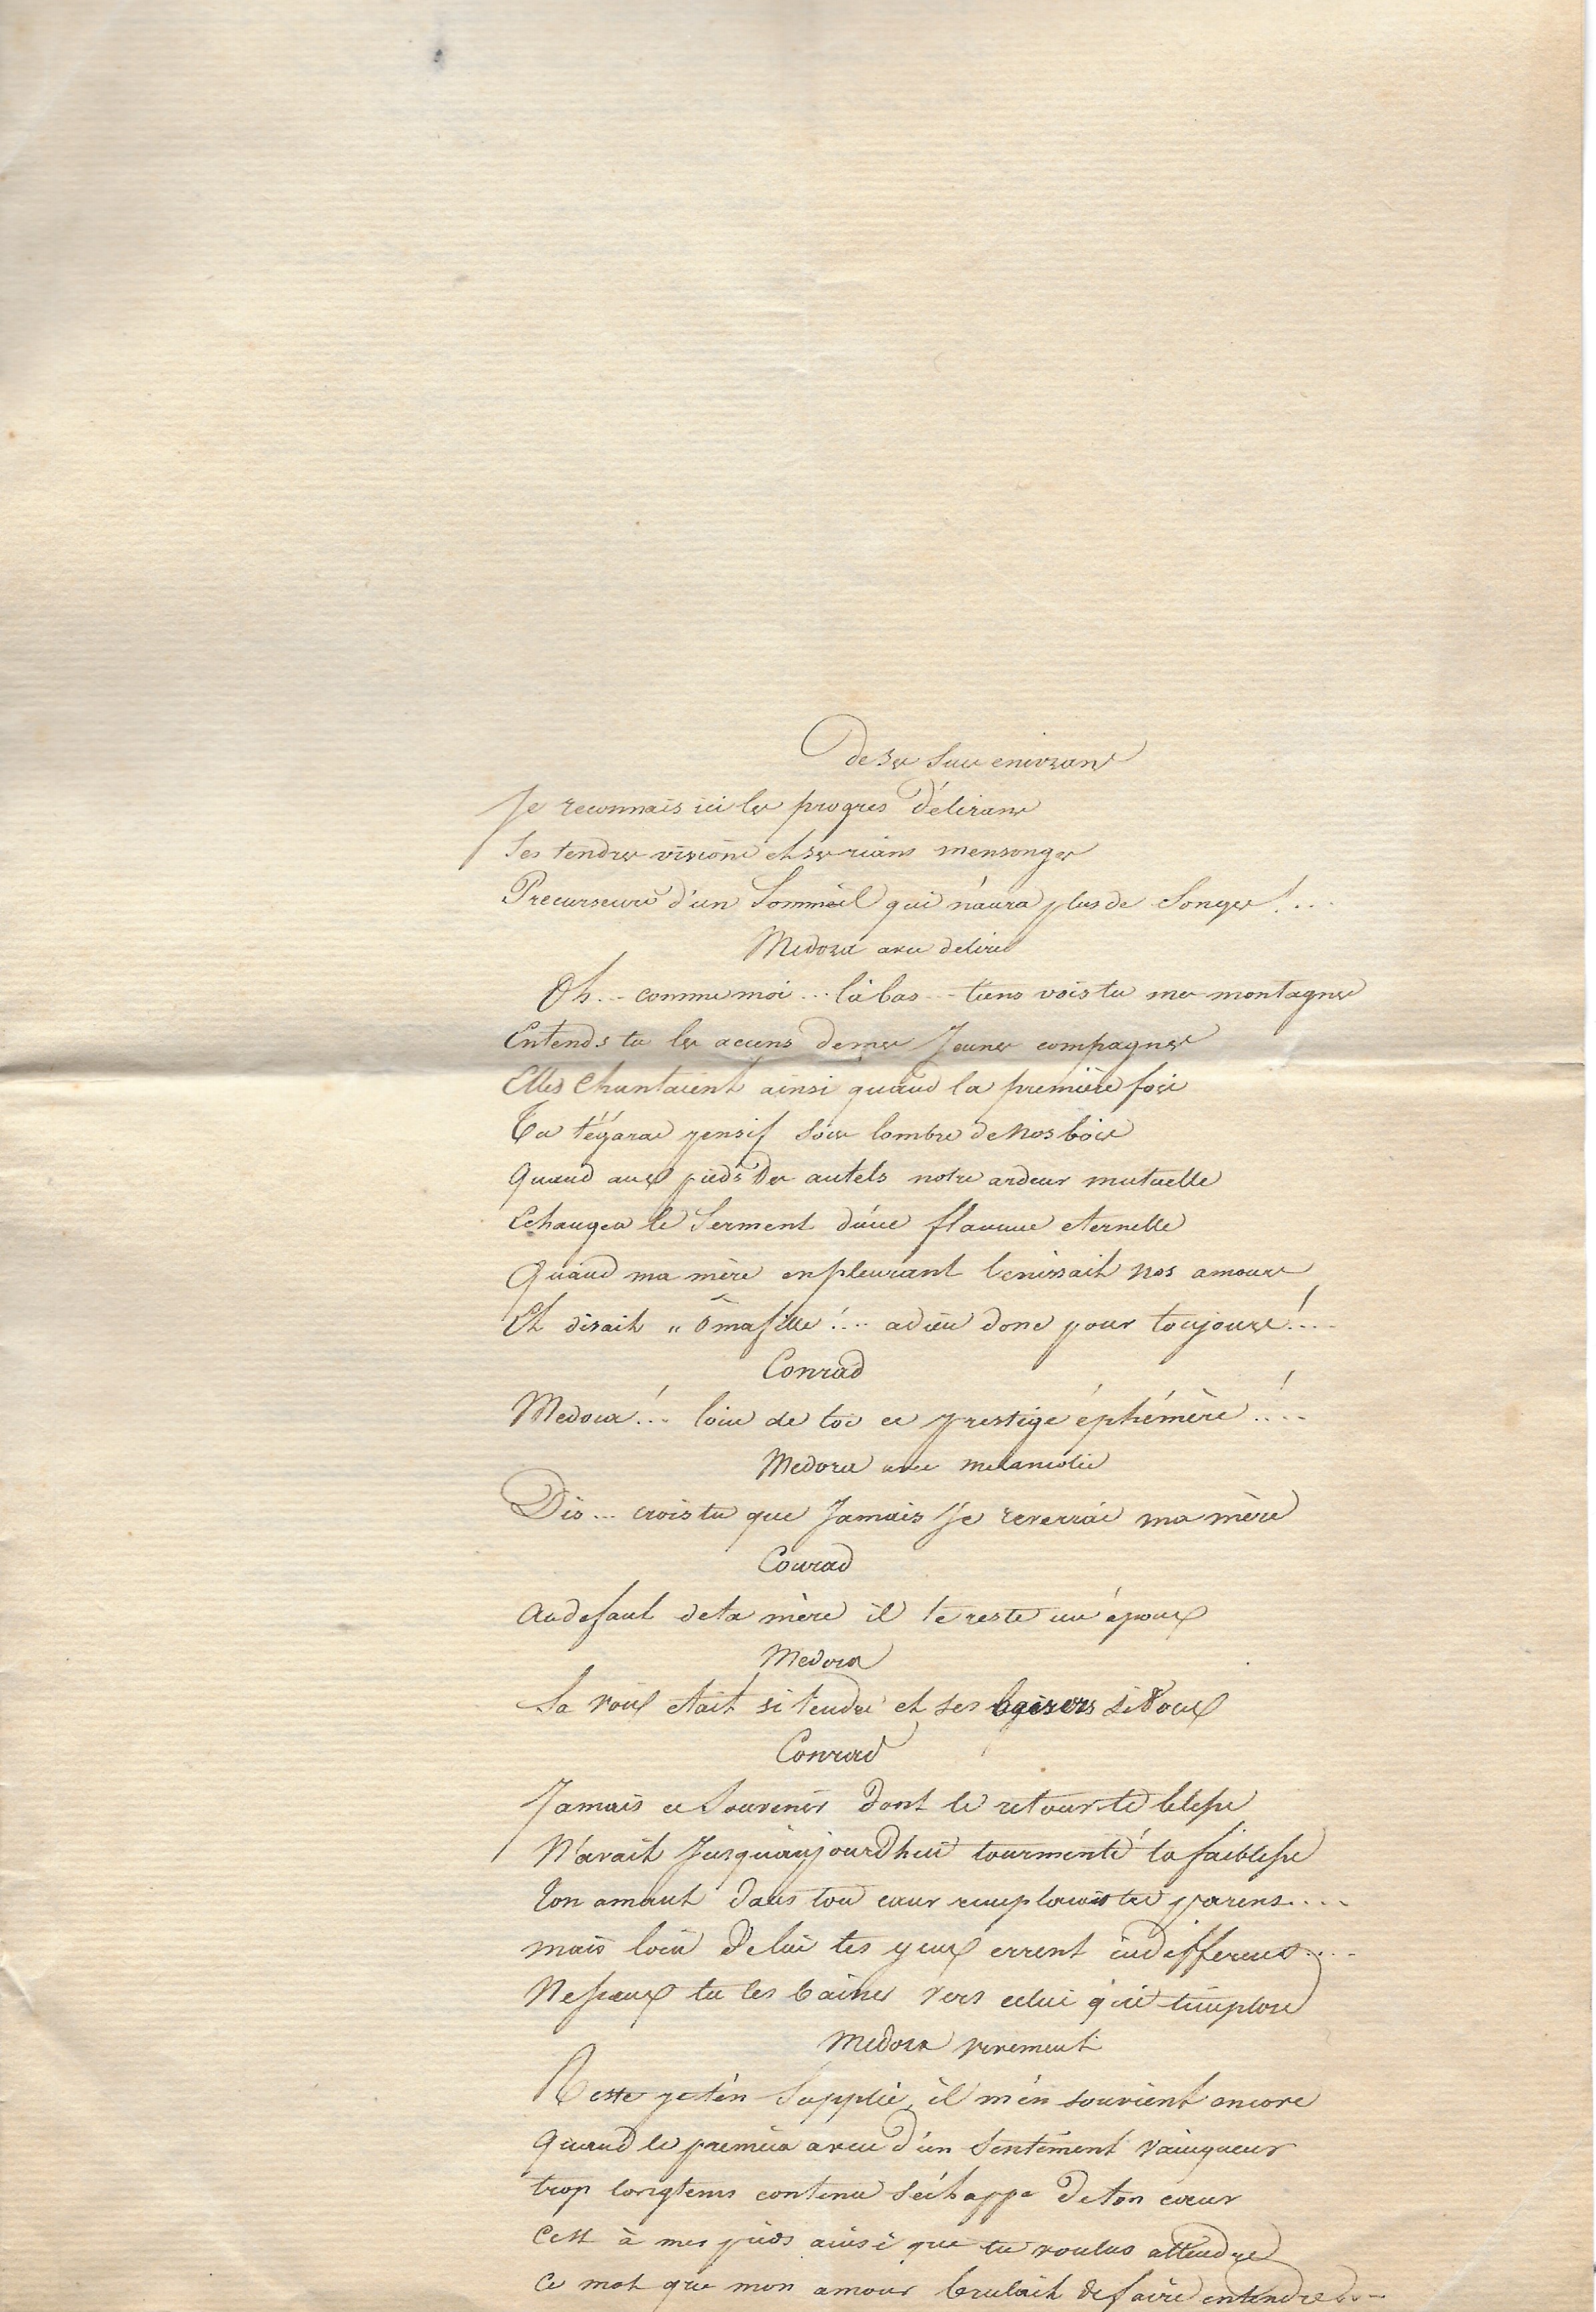 De ses sucs enivrans
Je reconnais ici les progres délirans
Ses tendres visions et ses rians mensonges
Precurseurs d'un Sommeil qui n'aura plus de Songes!...
Medora avec delire
Oh... comme moi... là bas... tiens vois tu mes montagnes
Entends tu les accens de mes Jeunes compagnes
Elles Chantaient ainsi quand la première fois
Tu t'égaras pensif sous lombre de Nos bois
Quand aux pieds des autels notre ardeur mutuelle
Echangea le Serment d'une flamme eternelle
Quand ma mère en pleurant benissait Nos amours
Et disait " ô ma fille!... adieu donc pour toujours!...
Conrad
Medora!... loin de toi ce prestige éphémère!...
Medora avec melancolie
Dis... crois tu que Jamais Je reverrai ma mère
Conrad
Au defaut de ta mère il te reste un époux
Medora
Sa voix etait si tendre et ses baisers si doux
Conrad
Jamais ce Souvenir dont le retour te blesse
N'avait Jusqu'aujourdhui tourmenté ta faiblesse
Ton amant dans ton cœur remplacait tes parens....
mais loin de lui tes yeux errent indifferens....
Ne peux tu les baisser vers celui qui t'implore
Medora vivement
Reste je t'en Supplie, il m'en souvient encore
Quand le premier aveu d'un Sentiment vainqueur
trop longtems contenu s'échappa De ton cœur
C'est à mes pieds ainsi que tu voulus attendre
Ce mot que mon amour brulait de faire entendre...